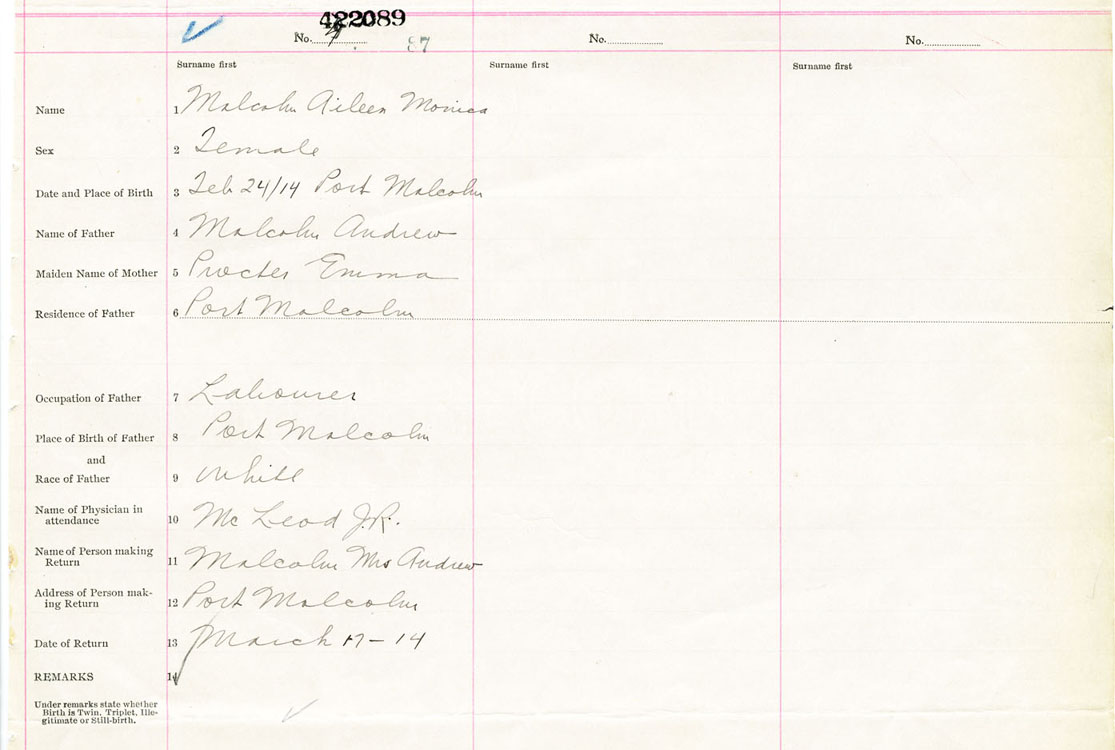 422089
No. 7. 87 No. No.
Surname first Surname first Surname first
Name 1 Malcolm Aileen Monica
Sex 2 Female
Date and Place of Birth 3 Feb 24/14 Port Malcolm
Name of Father 4 Malcolm Andrew
Maiden Name of Mother 5 Procter Emma
Residence of Father 6 Port Malcolm
Occupation of Father 7 Labourer
Place of Birth of Father 8 Port Malcolm
and
Race of Father 9 White
Name of Physician in
attendance 10 Mc Leod J.R.
Name of Person making
Return 11 Malcolm Mrs Andrew
Address of Person mak-
ing Return 12 Port Malcolm
Date of Return 13 March 17 - 14
REMARKS 14
Under remarks state whether
Birth is Twin, Triplet, Ille-
gitimate or Still-birth.